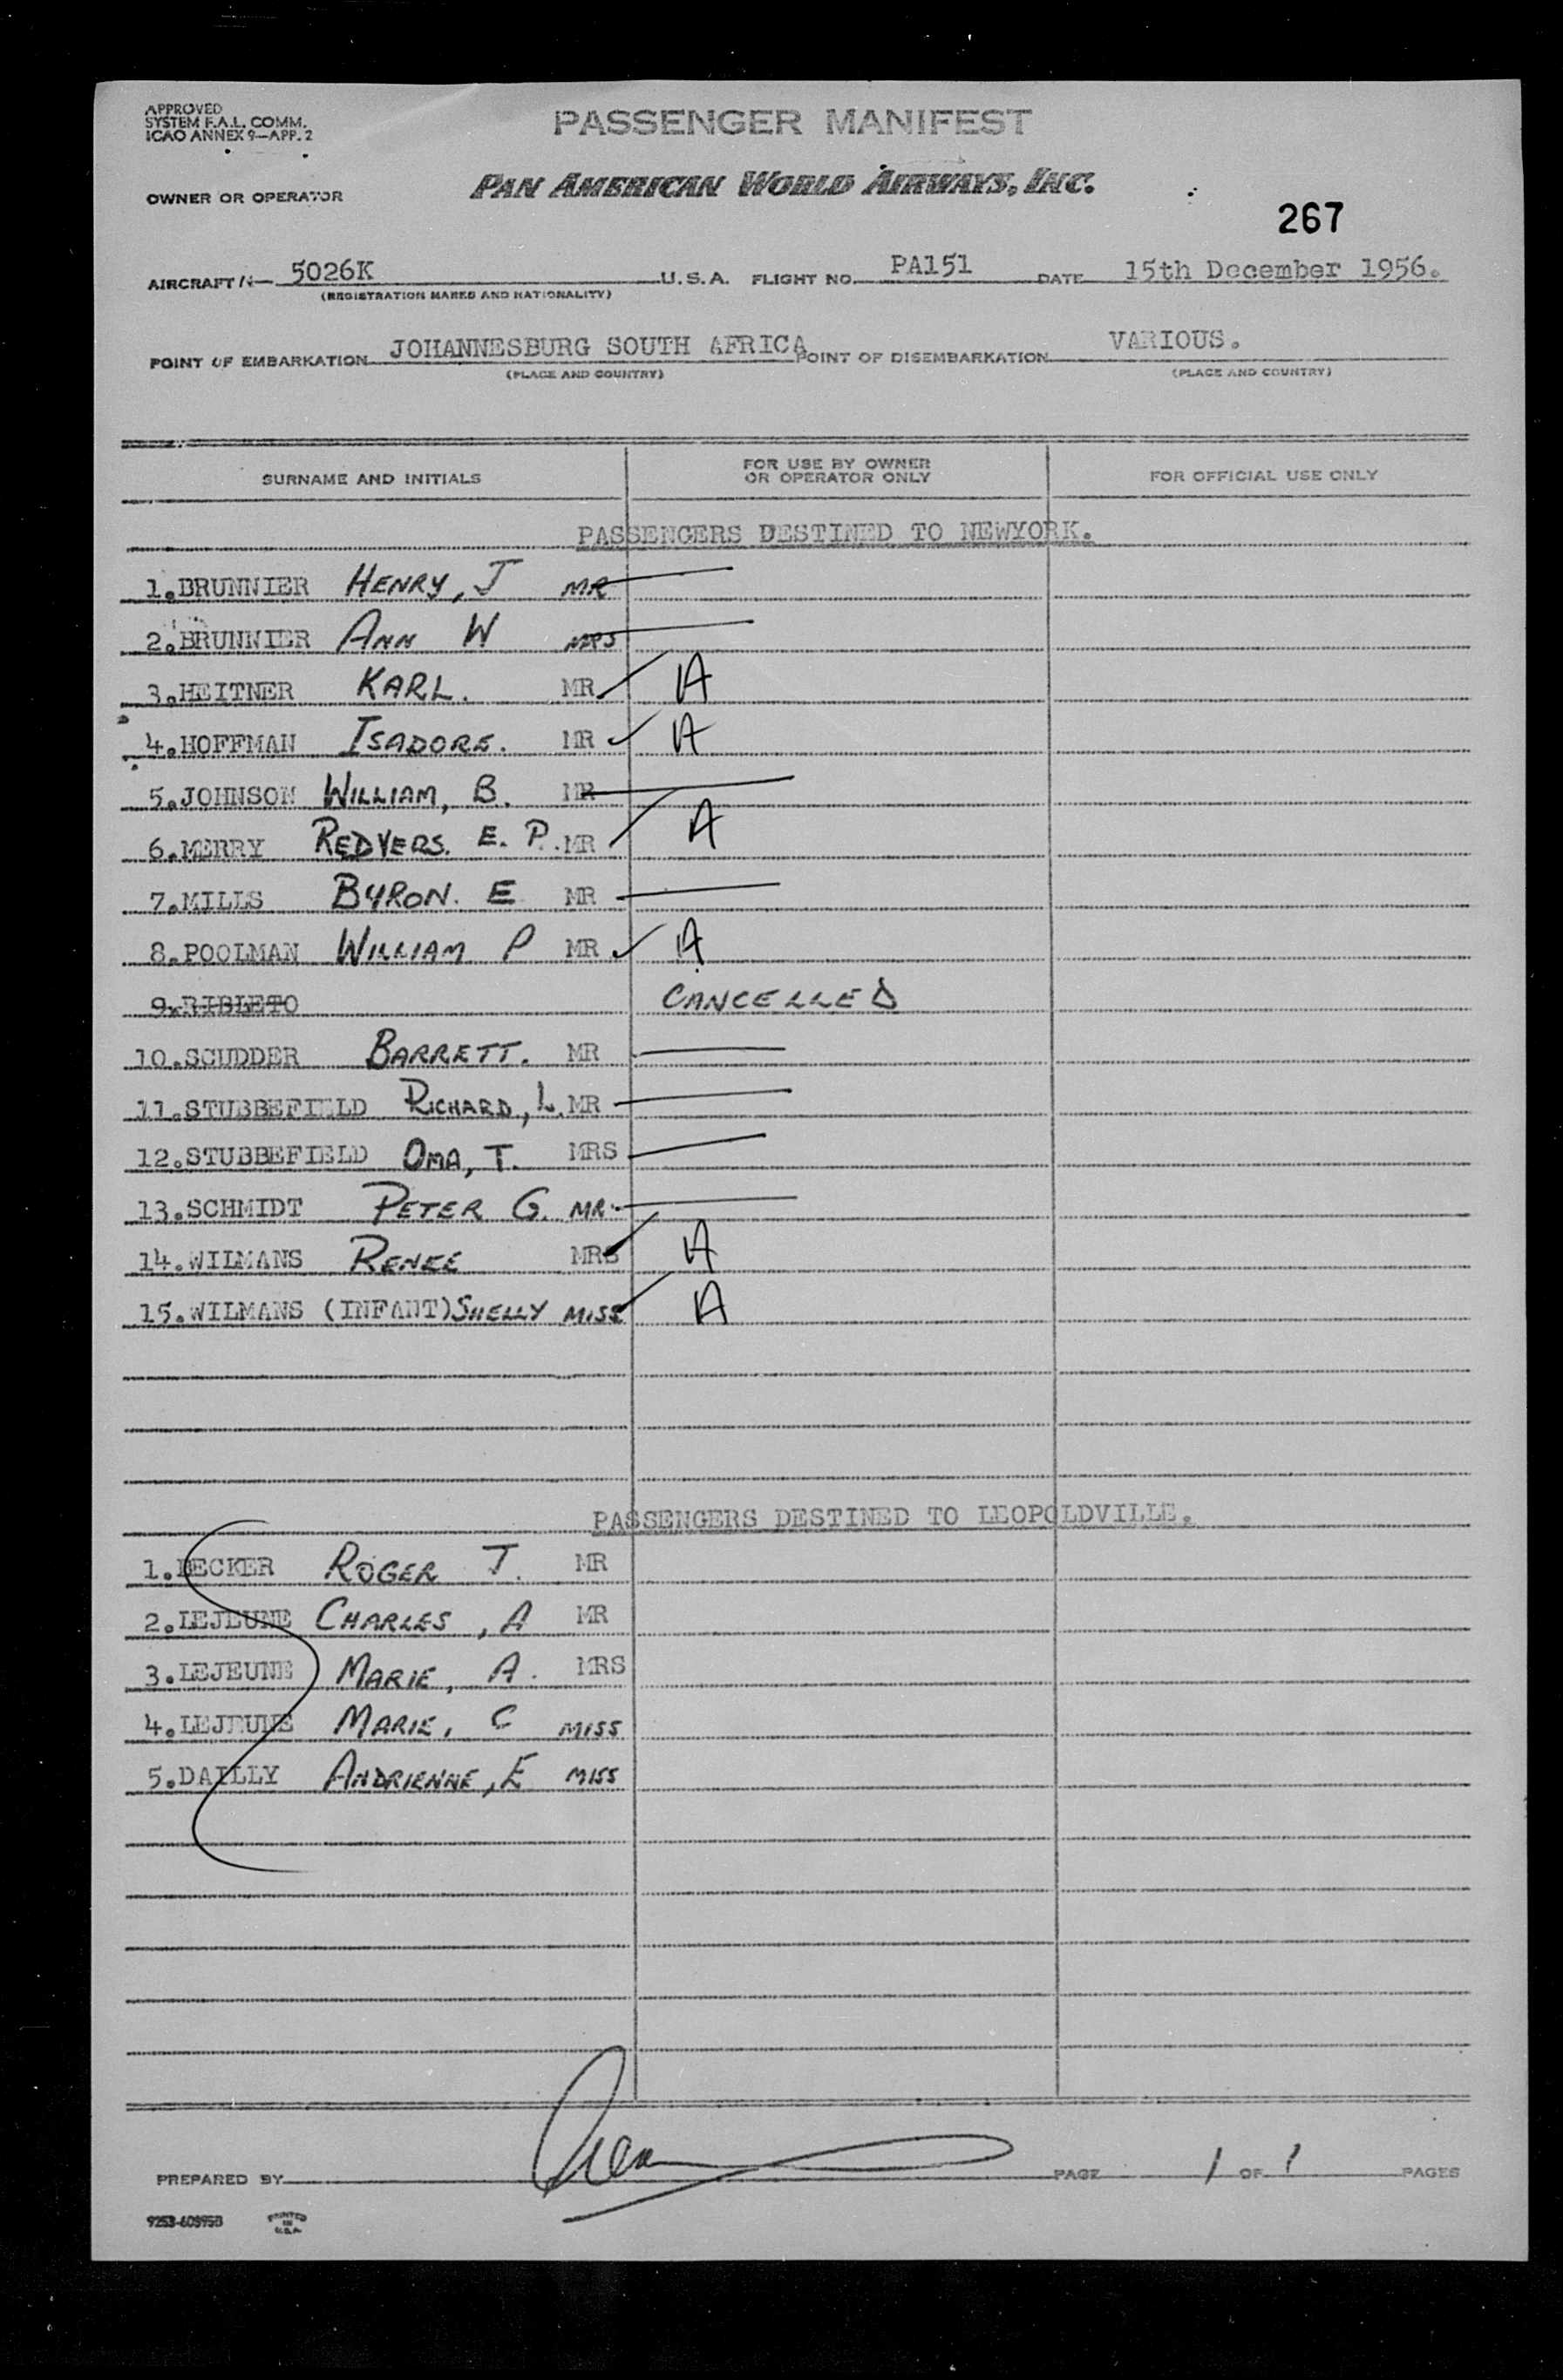 APPROVED
SYSTEM F.A.L. COMM.
ICAO ANNEX 9—APP. 2
PASSENGER MANIFEST
OWNER OR OPERATOR PAN AMERICAN WORLD AIRWAYS, INC.
267
AIRCRAFT N— 5026K U.S.A. FLIGHT NO. PA151 DATE 15th December 1956.
(REGISTRATION MARKS AND NATIONALITY)
POINT OF EMBARKATION JOHANNESBURG SOUTH AFRICA POINT OF DISEMBARKATION VARIOUS.
(PLACE AND COUNTRY) (PLACE AND COUNTRY)
SURNAME AND INITIALS FOR USE BY OWNER OR OPERATOR ONLY FOR OFFICIAL USE ONLY
PASSENGERS DESTINED TO NEWYORK.
1.BRUNNIER HENRY, J MR
2.BRUNNIER ANN W MRS
3.HEITNER KARL. MR A
4.HOFFMAN ISADORE. MR A
5.JOHNSON WILLIAM, B. MR
6.MERRY REDVERS. E. P. MR A
7.MILLS BYRON. E MR
8.POOLMAN WILLIAM P MR A
9.RIBLETO CANCELLED
10.SCUDDER BARRETT. MR
11.STUBBEFIELD RICHARD, L. MR
12.STUBBEFIELD OMA, T. MRS
13.SCHMIDT PETER G. MR
14.WILMANS RENEE MRS A
15.WILMANS (INFANT) SHELLY MISS A
PASSENGERS DESTINED TO LEOPOLDVILLE.
1.DECKER ROGER J. MR
2.LEJEUNE CHARLES, A MR
3.LEJEUNE MARIE, A. MRS
4.LEJEUNE MARIE, C MISS
5.DAILLY ANDRIENNE, E MISS
PREPARED BY PAGE 1 OF 1 PAGES
9253-60895B PRINTED IN U.S.A.